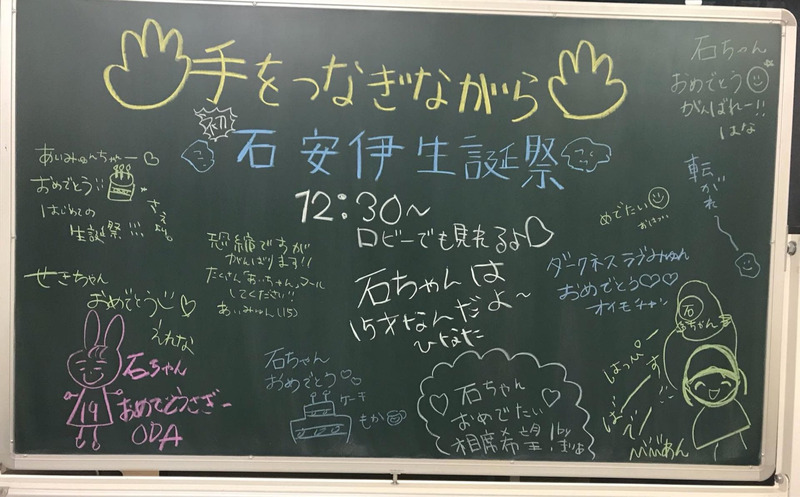 手をつなぎながら
石安伊生誕祭
12:30〜
ロビーでも見れるよ♡
石ちゃん
おめでとう
がんばれー!!
はな
転がれ〜
あいみゅんちゃー♡
おめでとう
はじめての
生誕祭!!!
恐縮ですが
がんばります!!
たくさん"あいちゃん"コール
してください!!
あいみゅん(15)
石ちゃんは
15才なんだよ〜
ひなた
めでたい
ダークネスラブみゅん
おめでとう♡♡♡
オイモチャン
せきちゃん
おめでとう♡
えれな
石ちゃん
おめでとうさぎー
ODA
19
石ちゃん
おめでとう♡♡
ケーキ
もか
石ちゃん
おめでたい
相席希望!
by
石
はっぴー
ばー